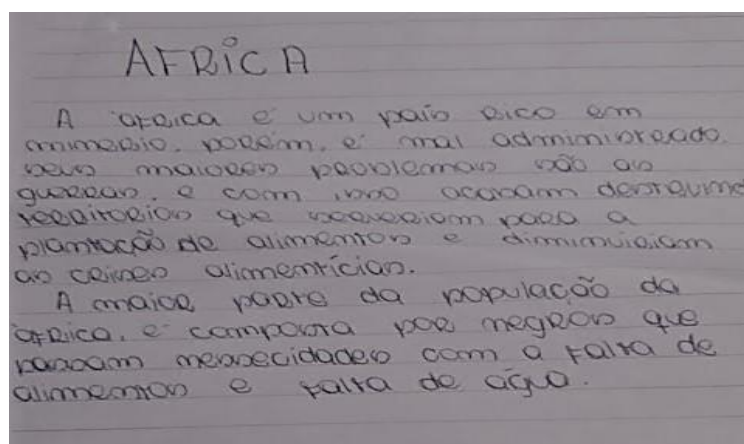 AFRICA
A africa é um país rico em
minerio, porém, é mal administrado.
seus maiores problemas são as
guerras, e com isso acabam destruindo
territorios que serveriam para a
plantação de alimentos e diminuiriam
as crises alimentícias.
A maior parte da população da
africa, é composta por negros que
passam nessecidades com a falta de
alimentos e falta de água.